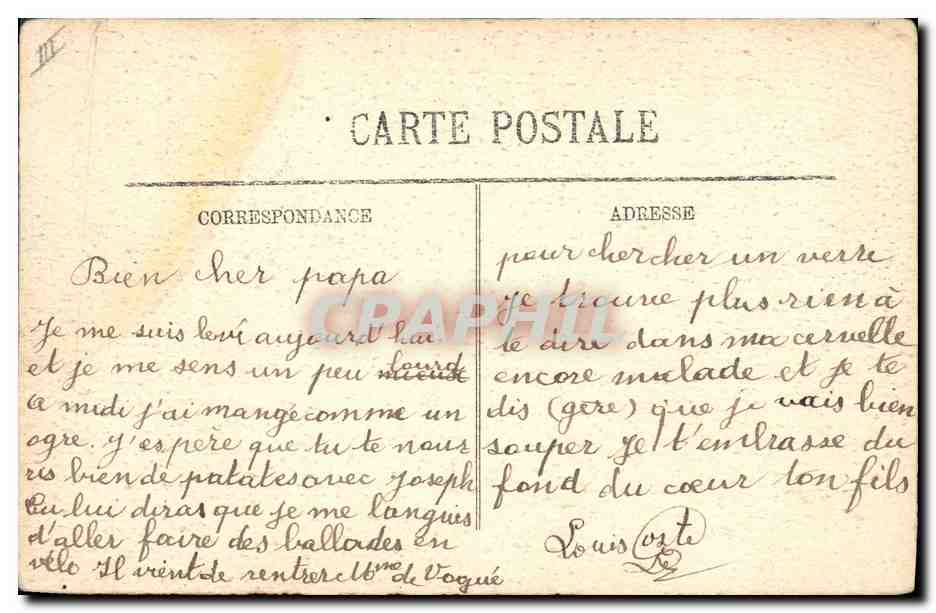 III
CARTE POSTALE
CORRESPONDANCE
Bien cher papa
Je me suis levé aujourd'hui
et je me sens un peu mieux lourd
a midi j'ai mangé comme un
ogre. J'espère que tu te nour
ris bien de patates avec Joseph
Tu lui diras que je me languis
d'aller faire des ballades en
vélo Il vient de rentrer Mme de Vogué
ADRESSE
pour chercher un verre
Je trouve plus rien à
te dire dans ma cervelle
encore malade et je te
dis (gère) que je vais bien
souper Je t'embrasse du
fond du cœur ton fils
Louis Coste
CPAPHIL